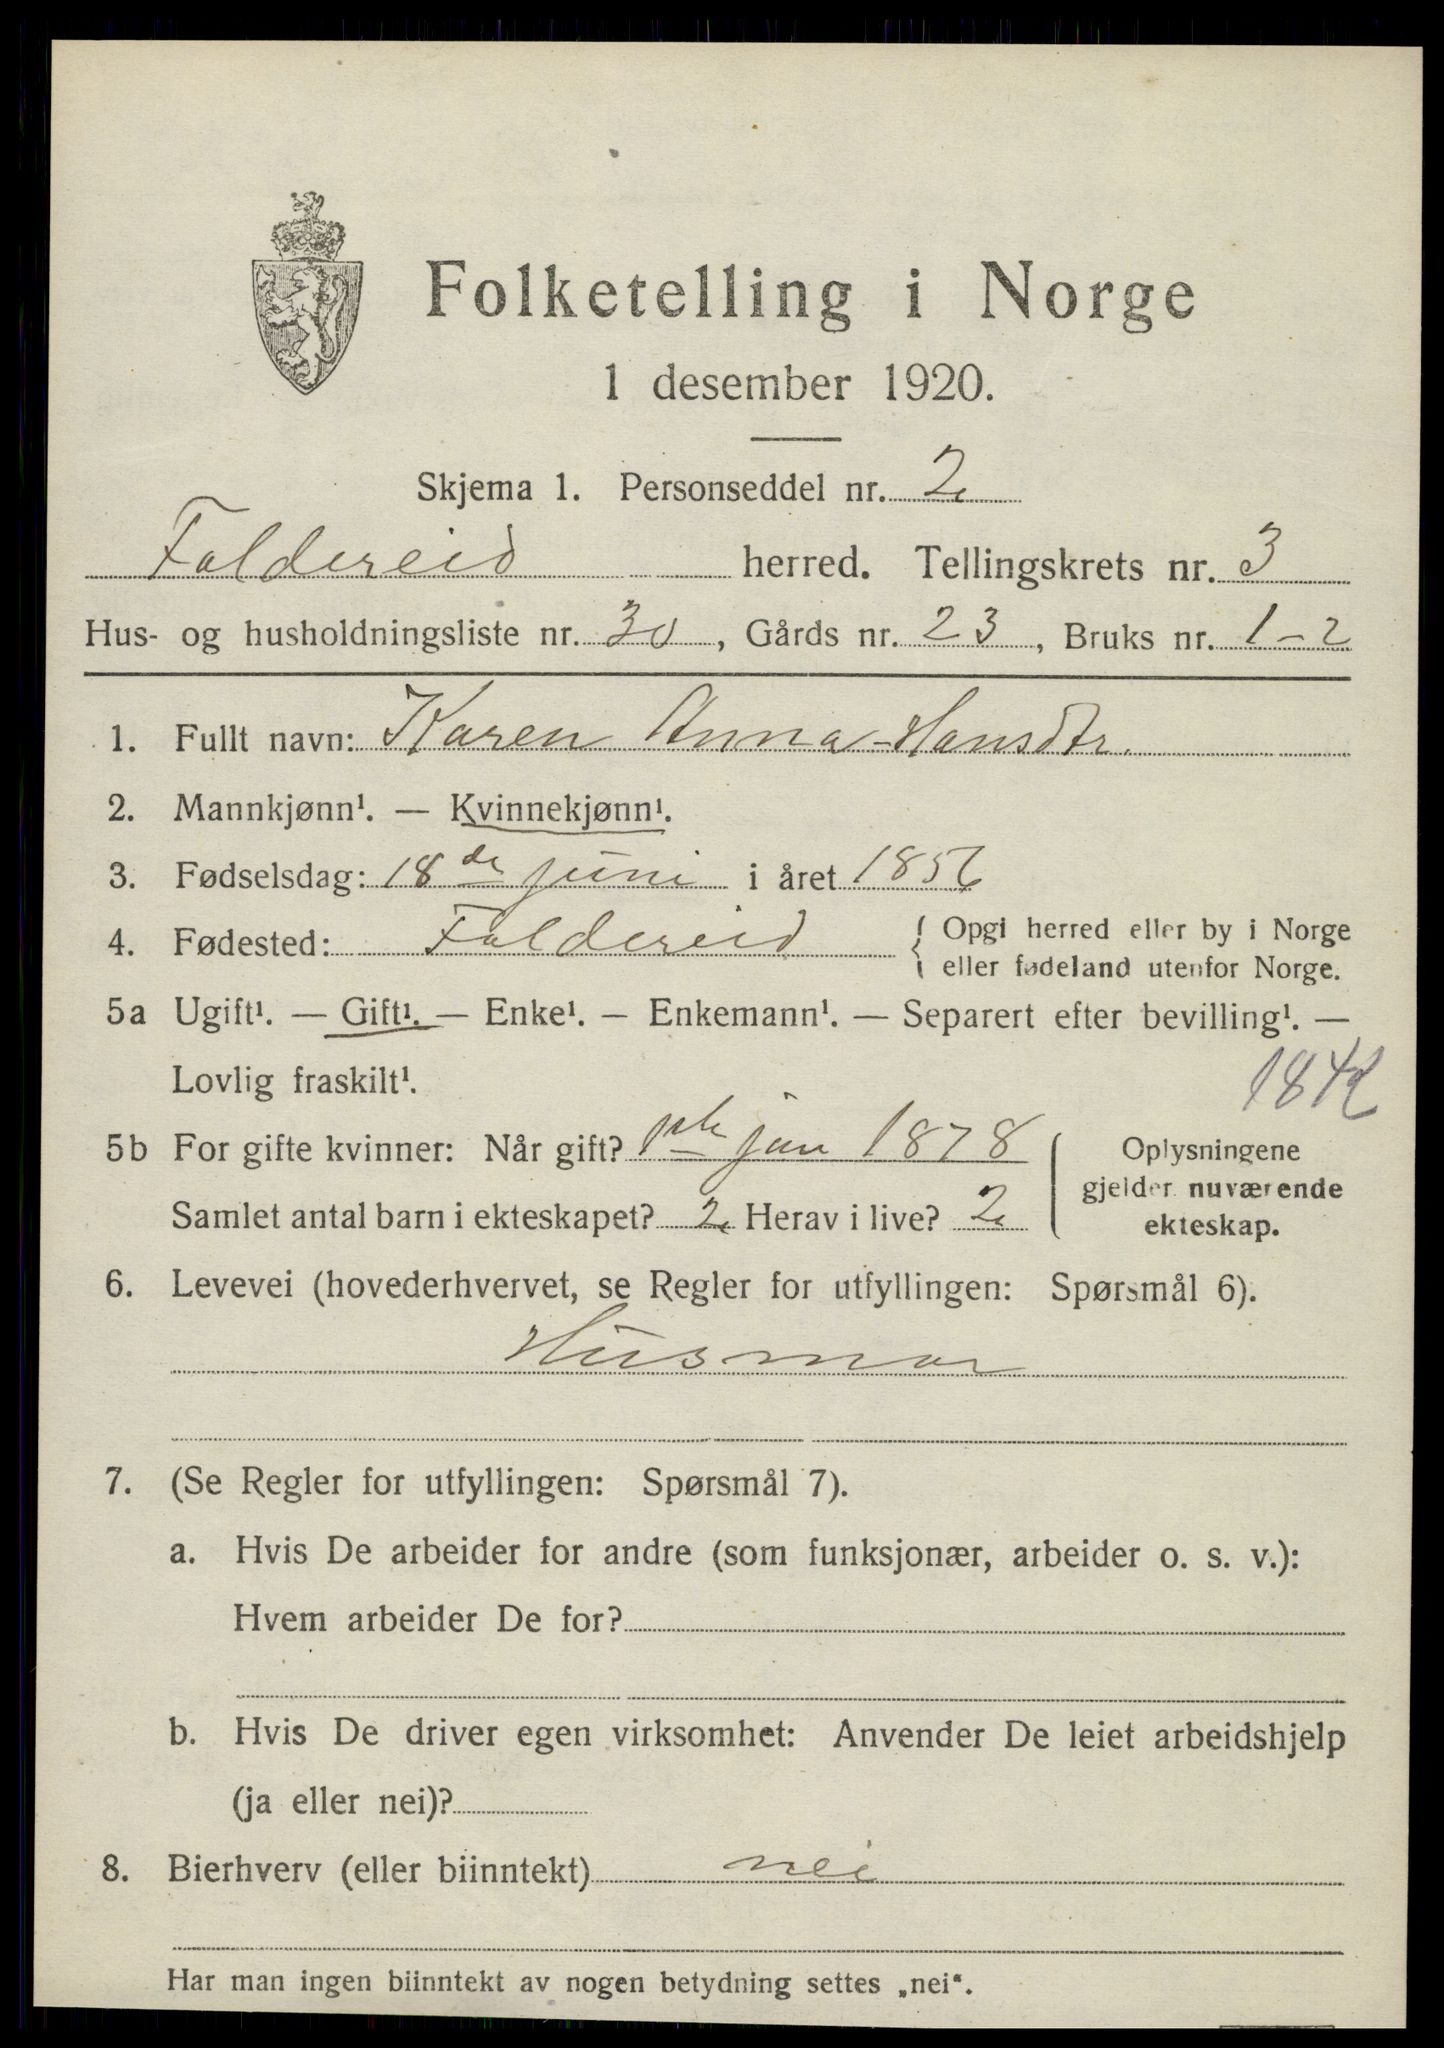 Folketelling i Norge
1 desember 1920.
Skjema 1. Personseddel nr. 2
Foldereid herred. Tellingskrets nr. 3
Hus- og husholdningsliste nr. 30, Gårds nr. 23, Bruks nr. 1-2
1. Fullt navn: Karen Anna Hansdtr.
2. Mannkjønn¹. — Kvinnekjønn¹.
3. Fødselsdag: 18de juni i året 1856
4. Fødested: Foldereid { Opgi herred eller by i Norge
eller fødeland utenfor Norge.
5a Ugift¹. — Gift¹. — Enke¹. — Enkemann¹. — Separert efter bevilling¹. —
Lovlig fraskilt¹.
5b For gifte kvinner: Når gift? 1ste jan 1878
Samlet antal barn i ekteskapet? 2 Herav i live? 2
Oplysningene
gjelder nuværende
ekteskap.
6. Levevei (hovederhvervet, se Regler for utfyllingen: Spørsmål 6).
Husmor
7. (Se Regler for utfyllingen: Spørsmål 7).
a. Hvis De arbeider for andre (som funksjonær, arbeider o. s. v.):
Hvem arbeider De for?
b. Hvis De driver egen virksomhet: Anvender De leiet arbeidshjelp
(ja eller nei)?
8. Bierhverv (eller biinntekt) nei
Har man ingen biinntekt av nogen betydning settes „nei“.